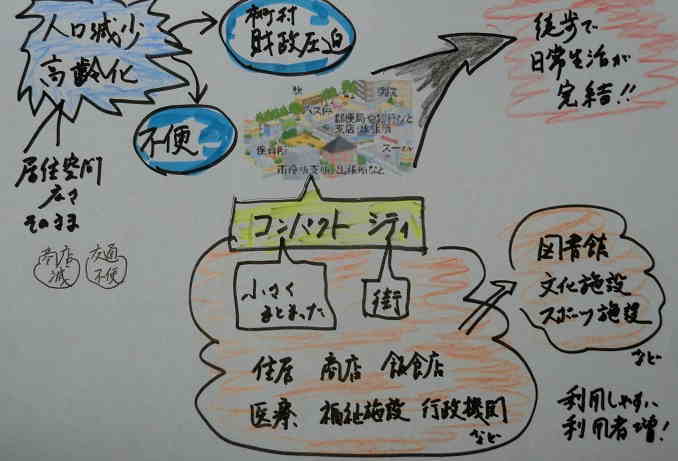 人口減少
高齢化
市町村
財政圧迫
不便
居住空間
広さ
そのまま
商店
減
交通
不便
徒歩で
日常生活が
完結!!
駅
バス停
病院
郵便局や銀行など
支店・出張所
保育所
スーパー
市役所支所・出張所など
コンパクト シティ
小さく
まとまった
街
住居 商店 飲食店
医療 福祉施設 行政機関
など
図書館
文化施設
スポーツ施設
など
利用しやすい
利用者増!